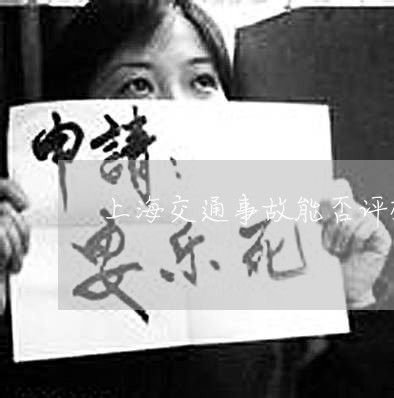 申請：
上海交通事故能否评
安乐死